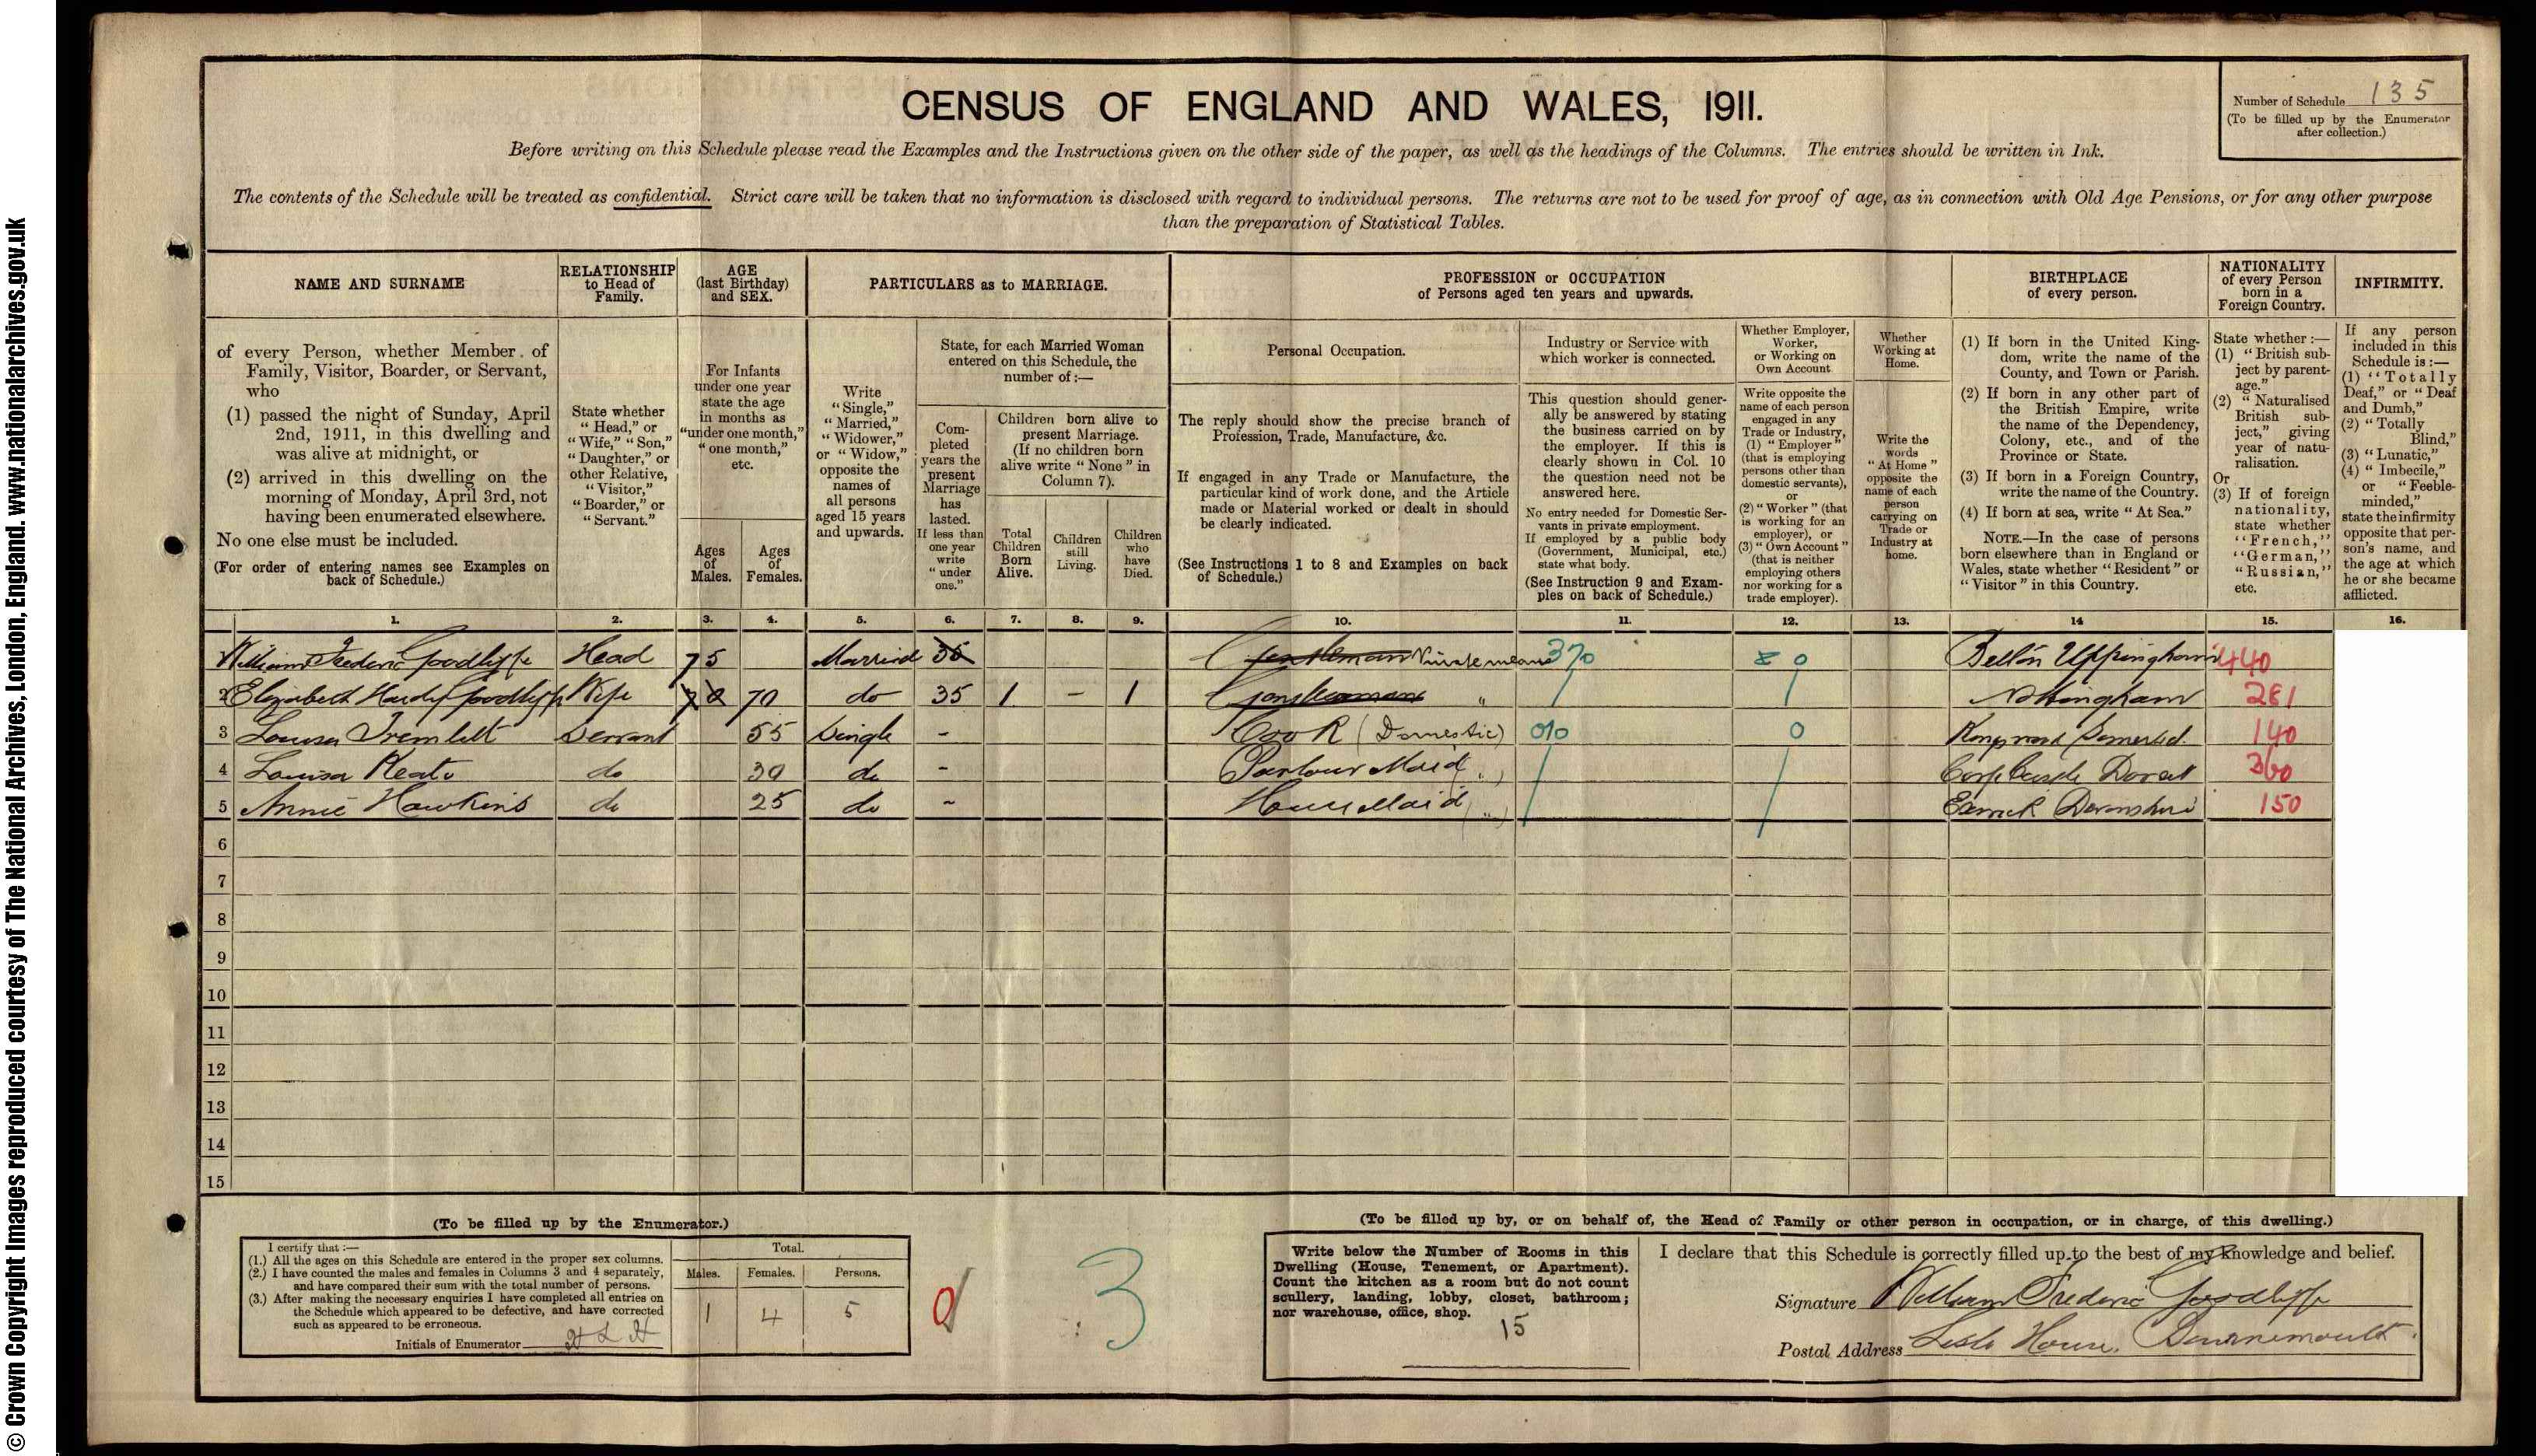 © Crown Copyright Images reproduced courtesy of The National Archives, London, England. www.nationalarchives.gov.uk
CENSUS OF ENGLAND AND WALES, 1911.
Number of Schedule 135
(To be filled up by the Enumerator after collection.)
Before writing on this Schedule please read the Examples and the Instructions given on the other side of the paper, as well as the headings of the Columns. The entries should be written in Ink.
The contents of the Schedule will be treated as confidential. Strict care will be taken that no information is disclosed with regard to individual persons. The returns are not to be used for proof of age, as in connection with Old Age Pensions, or for any other purpose
than the preparation of Statistical Tables.
NAME AND SURNAME
of every Person, whether Member of
Family, Visitor, Boarder, or Servant,
who
(1) passed the night of Sunday, April
2nd, 1911, in this dwelling and
was alive at midnight, or
(2) arrived in this dwelling on the
morning of Monday, April 3rd, not
having been enumerated elsewhere.
No one else must be included.
(For order of entering names see Examples on
back of Schedule.)
RELATIONSHIP
to Head of
Family.
State whether
"Head," or
"Wife," "Son,"
"Daughter," or
other Relative,
"Visitor,"
"Boarder," or
"Servant."
AGE
(last Birthday)
and SEX.
For Infants
under one year
state the age
in months as
"under one month,"
"one month,"
etc.
Ages
of
Males.
Ages
of
Females.
PARTICULARS as to MARRIAGE.
Write
"Single,"
"Married,"
"Widower,"
or "Widow,"
opposite the
names of
all persons
aged 15 years
and upwards.
State, for each Married Woman
entered on this Schedule, the
number of:—
Com-
pleted
years the
present
Marriage
has
lasted.
If less than
one year
write
"under
one."
Children born alive to
present Marriage.
(If no children born
alive write "None" in
Column 7).
Total
Children
Born
Alive.
Children
still
Living.
Children
who
have
Died.
PROFESSION or OCCUPATION
of Persons aged ten years and upwards.
Personal Occupation.
The reply should show the precise branch of
Profession, Trade, Manufacture, &c.
If engaged in any Trade or Manufacture, the
particular kind of work done, and the Article
made or Material worked or dealt in should
be clearly indicated.
(See Instructions 1 to 8 and Examples on back
of Schedule.)
Industry or Service with
which worker is connected.
This question should gener-
ally be answered by stating
the business carried on by
the employer. If this is
clearly shown in Col. 10
the question need not be
answered here.
No entry needed for Domestic Ser-
vants in private employment.
If employed by a public body
(Government, Municipal, etc.)
state what body.
(See Instruction 9 and Exam-
ples on back of Schedule.)
Whether Employer,
Worker,
or Working on
Own Account
Write opposite the
name of each person
engaged in any
Trade or Industry,
(1) "Employer"
(that is employing
persons other than
domestic servants),
or
(2) "Worker" (that
is working for an
employer), or
(3) "Own Account"
(that is neither
employing others
nor working for a
trade employer).
Whether
Working at
Home.
Write the
words
"At Home"
opposite the
name of each
person
carrying on
Trade or
Industry at
home.
BIRTHPLACE
of every person.
(1) If born in the United King-
dom, write the name of the
County, and Town or Parish.
(2) If born in any other part of
the British Empire, write
the name of the Dependency,
Colony, etc., and of the
Province or State.
(3) If born in a Foreign Country,
write the name of the Country.
(4) If born at sea, write "At Sea."
NOTE.—In the case of persons
born elsewhere than in England or
Wales, state whether "Resident" or
"Visitor" in this Country.
NATIONALITY
of every Person
born in a
Foreign Country.
State whether:—
(1) "British sub-
ject by parent-
age."
(2) "Naturalised
British sub-
ject," giving
year of natu-
ralisation.
Or
(3) If of foreign
nationality,
state whether
"French,"
"German,"
"Russian,"
etc.
INFIRMITY.
If any person
included in this
Schedule is:—
(1) "Totally
Deaf," or "Deaf
and Dumb,"
(2) "Totally
Blind,"
(3) "Lunatic,"
(4) "Imbecile,"
or "Feeble-
minded,"
state the infirmity
opposite that per-
son's name, and
the age at which
he or she became
afflicted.
1. 2. 3. 4. 5. 6. 7. 8. 9. 10. 11. 12. 13. 14 15. 16.
William Frederic Goodliffe Head 75 Married 35 Gentleman Private means 370 0 Belton Uppingham 440
2 Elizabeth Hardy Goodliffe Wife 70 70 do 35 1 – 1 " Nottingham 281
3 Louisa Tremlett Servant 55 Single - Cook (Domestic) 010 0 Somerset 140
4 Louisa do 30 do - Parlour Maid ( " ) Corfe Castle Dorset 360
5 Annie Hawkins do 25 do - House Maid ( " ) Devonshire 150
6
7
8
9
10
11
12
13
14
15
(To be filled up by the Enumerator.)
I certify that:—
(1.) All the ages on this Schedule are entered in the proper sex columns.
(2.) I have counted the males and females in Columns 3 and 4 separately,
and have compared their sum with the total number of persons.
(3.) After making the necessary enquiries I have completed all entries on
the Schedule which appeared to be defective, and have corrected
such as appeared to be erroneous.
Initials of Enumerator
Total.
Males. Females. Persons.
1 4 5
0 3
(To be filled up by, or on behalf of, the Head of Family or other person in occupation, or in charge, of this dwelling.)
Write below the Number of Rooms in this
Dwelling (House, Tenement, or Apartment).
Count the kitchen as a room but do not count
scullery, landing, lobby, closet, bathroom;
nor warehouse, office, shop.
15
I declare that this Schedule is correctly filled up to the best of my knowledge and belief.
Signature William Frederic Goodliffe
Postal Address House, Bournemouth.